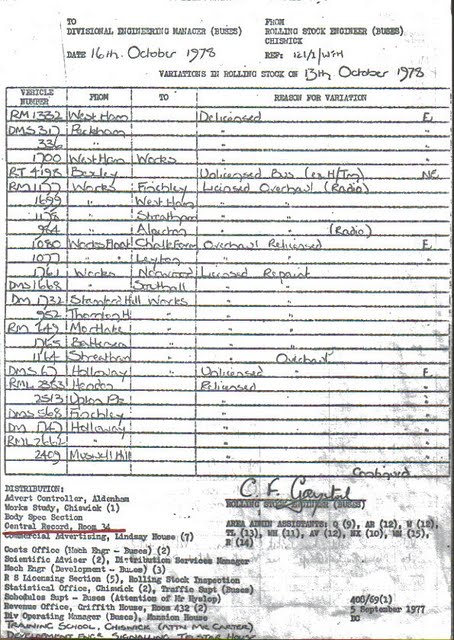 TO FROM
DIVISIONAL ENGINEERING MANAGER (BUSES) ROLLING STOCK ENGINEER (BUSES)
CHISWICK
DATE 16th October 1978 REF: 121/1/WTH
VARIATIONS IN ROLLING STOCK ON 13th October 1978
VEHICLE NUMBER FROM TO REASON FOR VARIATION
RM 1332 West Ham Delicensed E
DMS 317 Peckham " "
336 " " "
1700 West Ham Works " "
RT 4198 Bexley Unlicensed Bus (ex H/Trn) NE
RM 1177 Works Finchley Licensed Overhaul (Radio)
1699 " West Ham " "
1178 " Streatham " "
964 " Alperton " " (Radio)
1080 Works Float Chalk Farm Overhaul Relicensed E
1077 " Leyton " " "
1761 Works Norwood Licensed Repaint
DMS 1668 " Southall " "
DM 1732 Stamford Hill Works " "
952 Thornton H " " "
RM 649 Mortlake " " "
1765 Battersea " " "
1164 Streatham " " Overhaul
DMS 67 Holloway " Unlicensed E
RML 2353 Hendon Relicensed "
2513 Upton Pk " "
DMS 568 Finchley " "
DM Holloway " "
RML " " "
2409 Muswell Hill " "
Continued
DISTRIBUTION:
Advert Controller, Aldenham
Works Study, Chiswick (1)
Body Spec Section
Central Record, Room 34
Commercial Advertising, Lindsay House (7)
Costs Office (Mech Engr - Buses) (2)
Scientific Adviser (2), Distribution Services Manager
Mech Engr (Development - Buses) (3)
R S Licensing Section (5), Rolling Stock Inspection
Statistical Office, Chiswick (2), Traffic Supt (Buses)
Schedules Supt - Buses (Attention of Mr Hyslop)
Revenue Office, Griffith House, Room 432 (2)
Div Operating Manager (Buses), Mansion House
TRAINING SCHOOL, CHISWICK (ATTN MR CARTER)
DEVELOPMENT ENGR SIGNALLING TELSTAR HOUSE
ROLLING STOCK ENGINEER (BUSES)
AREA ADMIN ASSISTANTS: Q (9), AR (12), W (12),
TL (13), WH (11), AV (12), HX (10), WN (15),
R (14)
408/69(1)
5 September 1977
DC